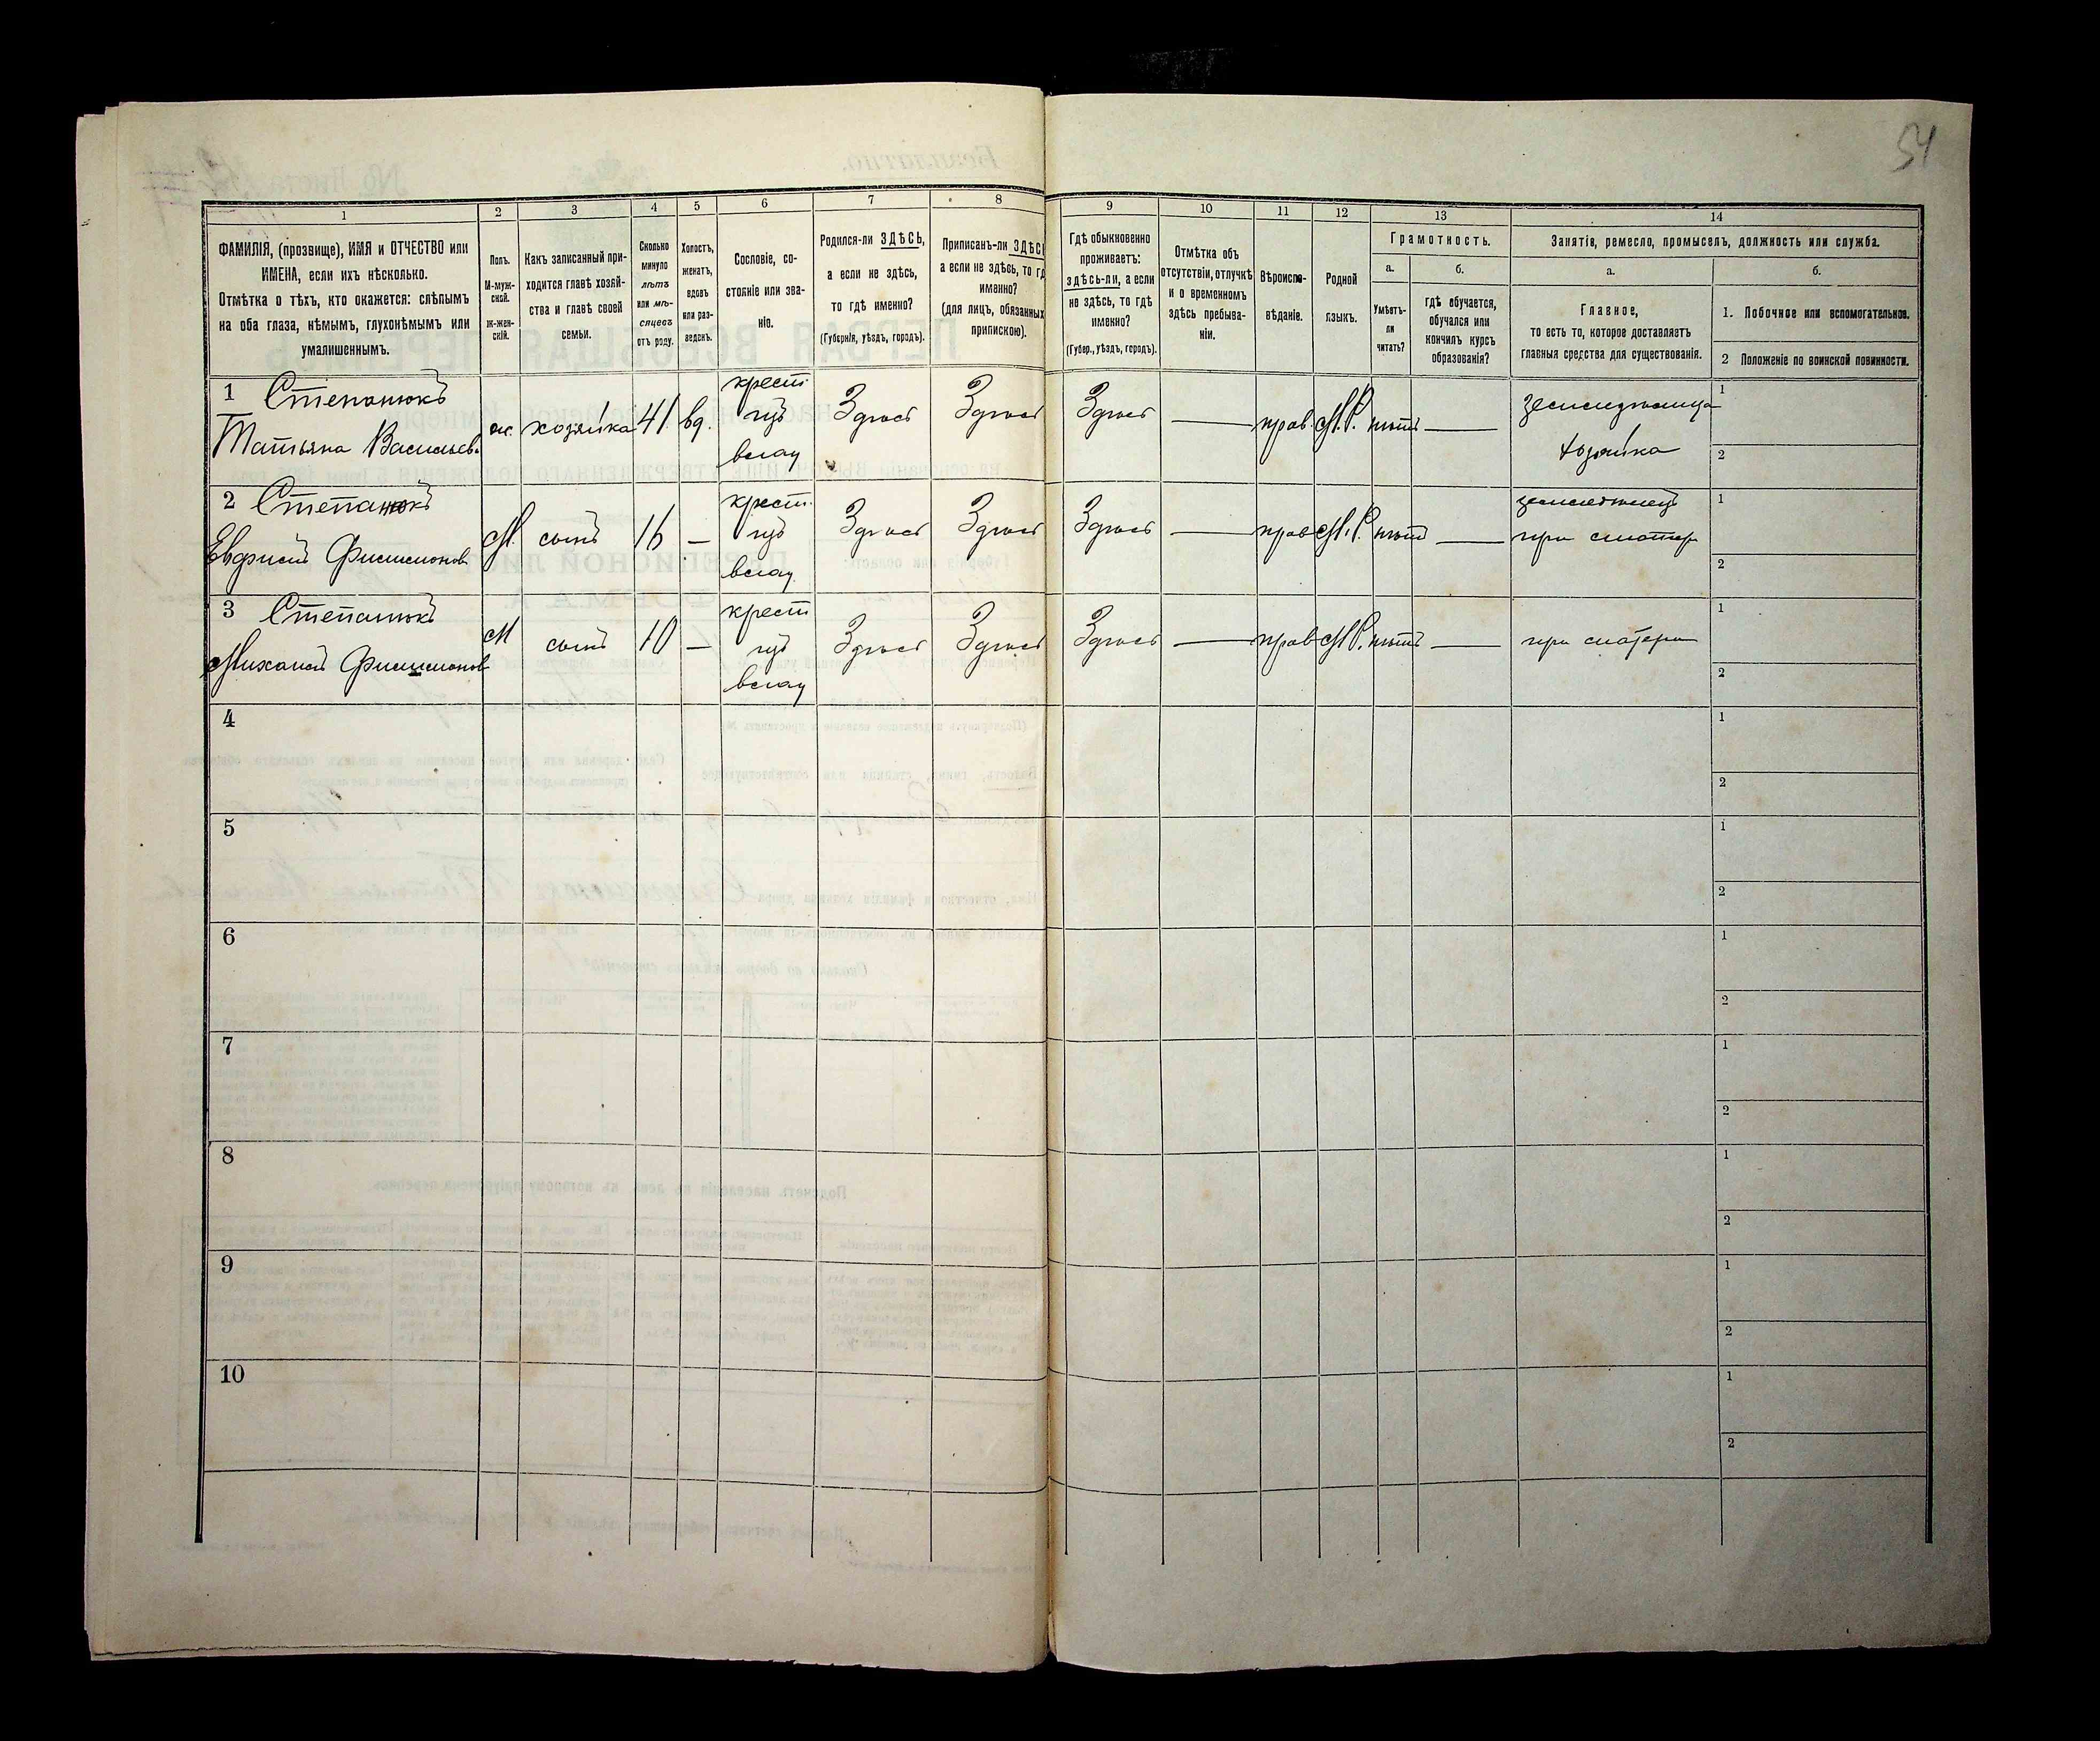 54
1 2 3 4 5 6 7 8 9 10 11 12 13 14
ФАМИЛІЯ, (прозвище), ИМЯ и ОТЧЕСТВО или
ИМЕНА, если ихъ нѣсколько.
Отмѣтка о тѣхъ, кто окажется: слѣпымъ
на оба глаза, нѣмымъ, глухонѣмымъ или
умалишеннымъ.
Полъ.
М-муж-
ской.
Ж-жен-
скій.
Какъ записанный при-
ходится главѣ хозяй-
ства и главѣ своей
семьи.
Сколько
минуло
лѣтъ
или мѣ-
сяцевъ
отъ роду.
Холостъ,
женатъ,
вдовъ
или раз-
веденъ.
Сословіе, со-
стояніе или зва-
ніе.
Родился-ли ЗДѢСЬ,
а если не здѣсь,
то гдѣ именно?
(Губернія, уѣздъ, городъ).
Приписанъ-ли ЗДѢСЬ
а если не здѣсь, то гд
именно?
(для лицъ, обязанныхъ
припискою).
Гдѣ обыкновенно
проживаетъ:
здѣсь-ли, а если
не здѣсь, то гдѣ
именно?
(Губер., уѣздъ, городъ).
Отмѣтка объ
отсутствіи, отлучкѣ
и о временномъ
здѣсь пребыва-
ніи.
Вѣроиспо-
вѣданіе.
Родной
языкъ.
Грамотность.
а.
Умѣетъ-
ли
читать?
б.
гдѣ обучается,
обучался или
кончилъ курсъ
образованія?
Занятіе, ремесло, промыселъ, должность или служба.
а.
Главное,
то есть то, которое доставляетъ
главныя средства для существованія.
б.
1. Побочное или вспомогательное.
2 Положеніе по воинской повинности.
1 Степанюкъ
Татьяна Васильев.
ж. хозяйка 41 вд.
крест
изъ
влад
Здѣсь Здѣсь Здѣсь — прав. М.Р. нѣтъ —
земледѣлица
хозяйка
1
2
2 Степанюкъ
Филимонов
М. сынъ 16 —
крест.
изъ
влад
Здѣсь Здѣсь Здѣсь — прав М.Р. нѣтъ —
земледѣлецъ
при матер
1
2
3 Степанюкъ
Михаилъ Филимонов
М сынъ 10 —
крест
изъ
влад
Здѣсь Здѣсь Здѣсь — прав М.Р. нѣтъ —
при матери
1
2
4
1
2
5
1
2
6
1
2
7
1
2
8
1
2
9
1
2
10
1
2